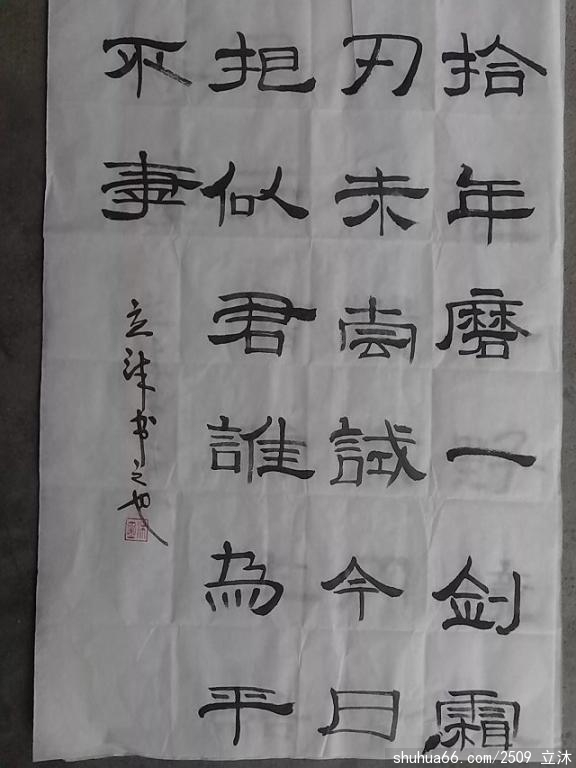 拾年磨一剑霜
刃未尝試今日
把似君誰為平
不事
立沐书之也
shuhua66.com/2509 立沐